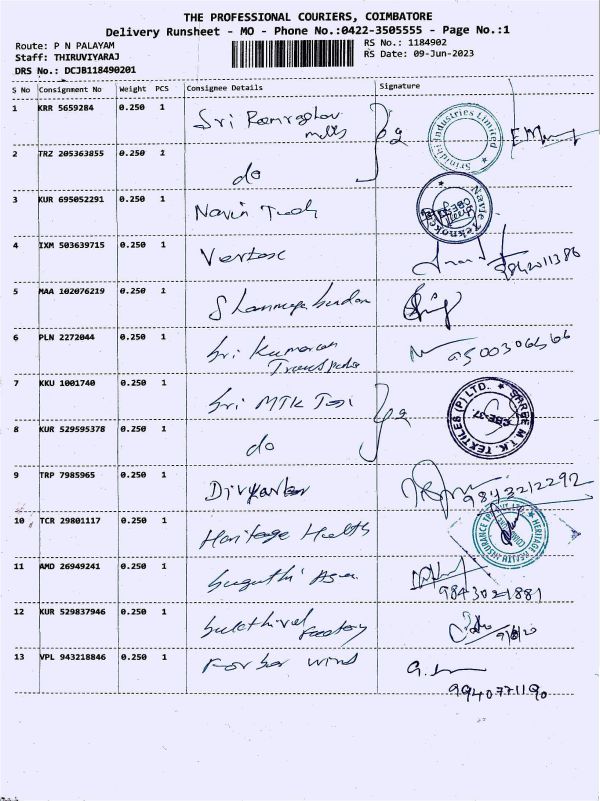 THE PROFESSIONAL COURIERS, COIMBATORE
Delivery Runsheet - MO - Phone No.:0422-3505555 - Page No.:1
Route: P N PALAYAM
RS No.: 1184902
Staff: THIRUVIYARAJ
RS Date: 09-Jun-2023
DRS No.: DCJB118490201
S No Consignment No Weight PCS Consignee Details Signature
1 KRR 5659284 0.250 1 Sri Ramraghav mills
Srinidhi Industries Limited
2 TRZ 205363855 0.250 1 do
3 KUR 695052291 0.250 1 Navin Tech
4 IXM 503639715 0.250 1 Vertex
9842011386
5 MAA 102076219 0.250 1
6 PLN 2272044 0.250 1 Sri Kumaran Transports
7 KKU 1001740 0.250 1 Sri MTK Tex
M.T.K. TEXTILES (P) LTD.
CBE-37.
8 KUR 529595378 0.250 1 do
9 TRP 7985965 0.250 1
9843212292
10 TCR 29801117 0.250 1 Heritage Health
HERITAGE HEALTH INSURANCE
11 AMD 26949241 0.250 1
9843021881
12 KUR 529837946 0.250 1 Factory
13 VPL 943218846 0.250 1 wind
9940771190